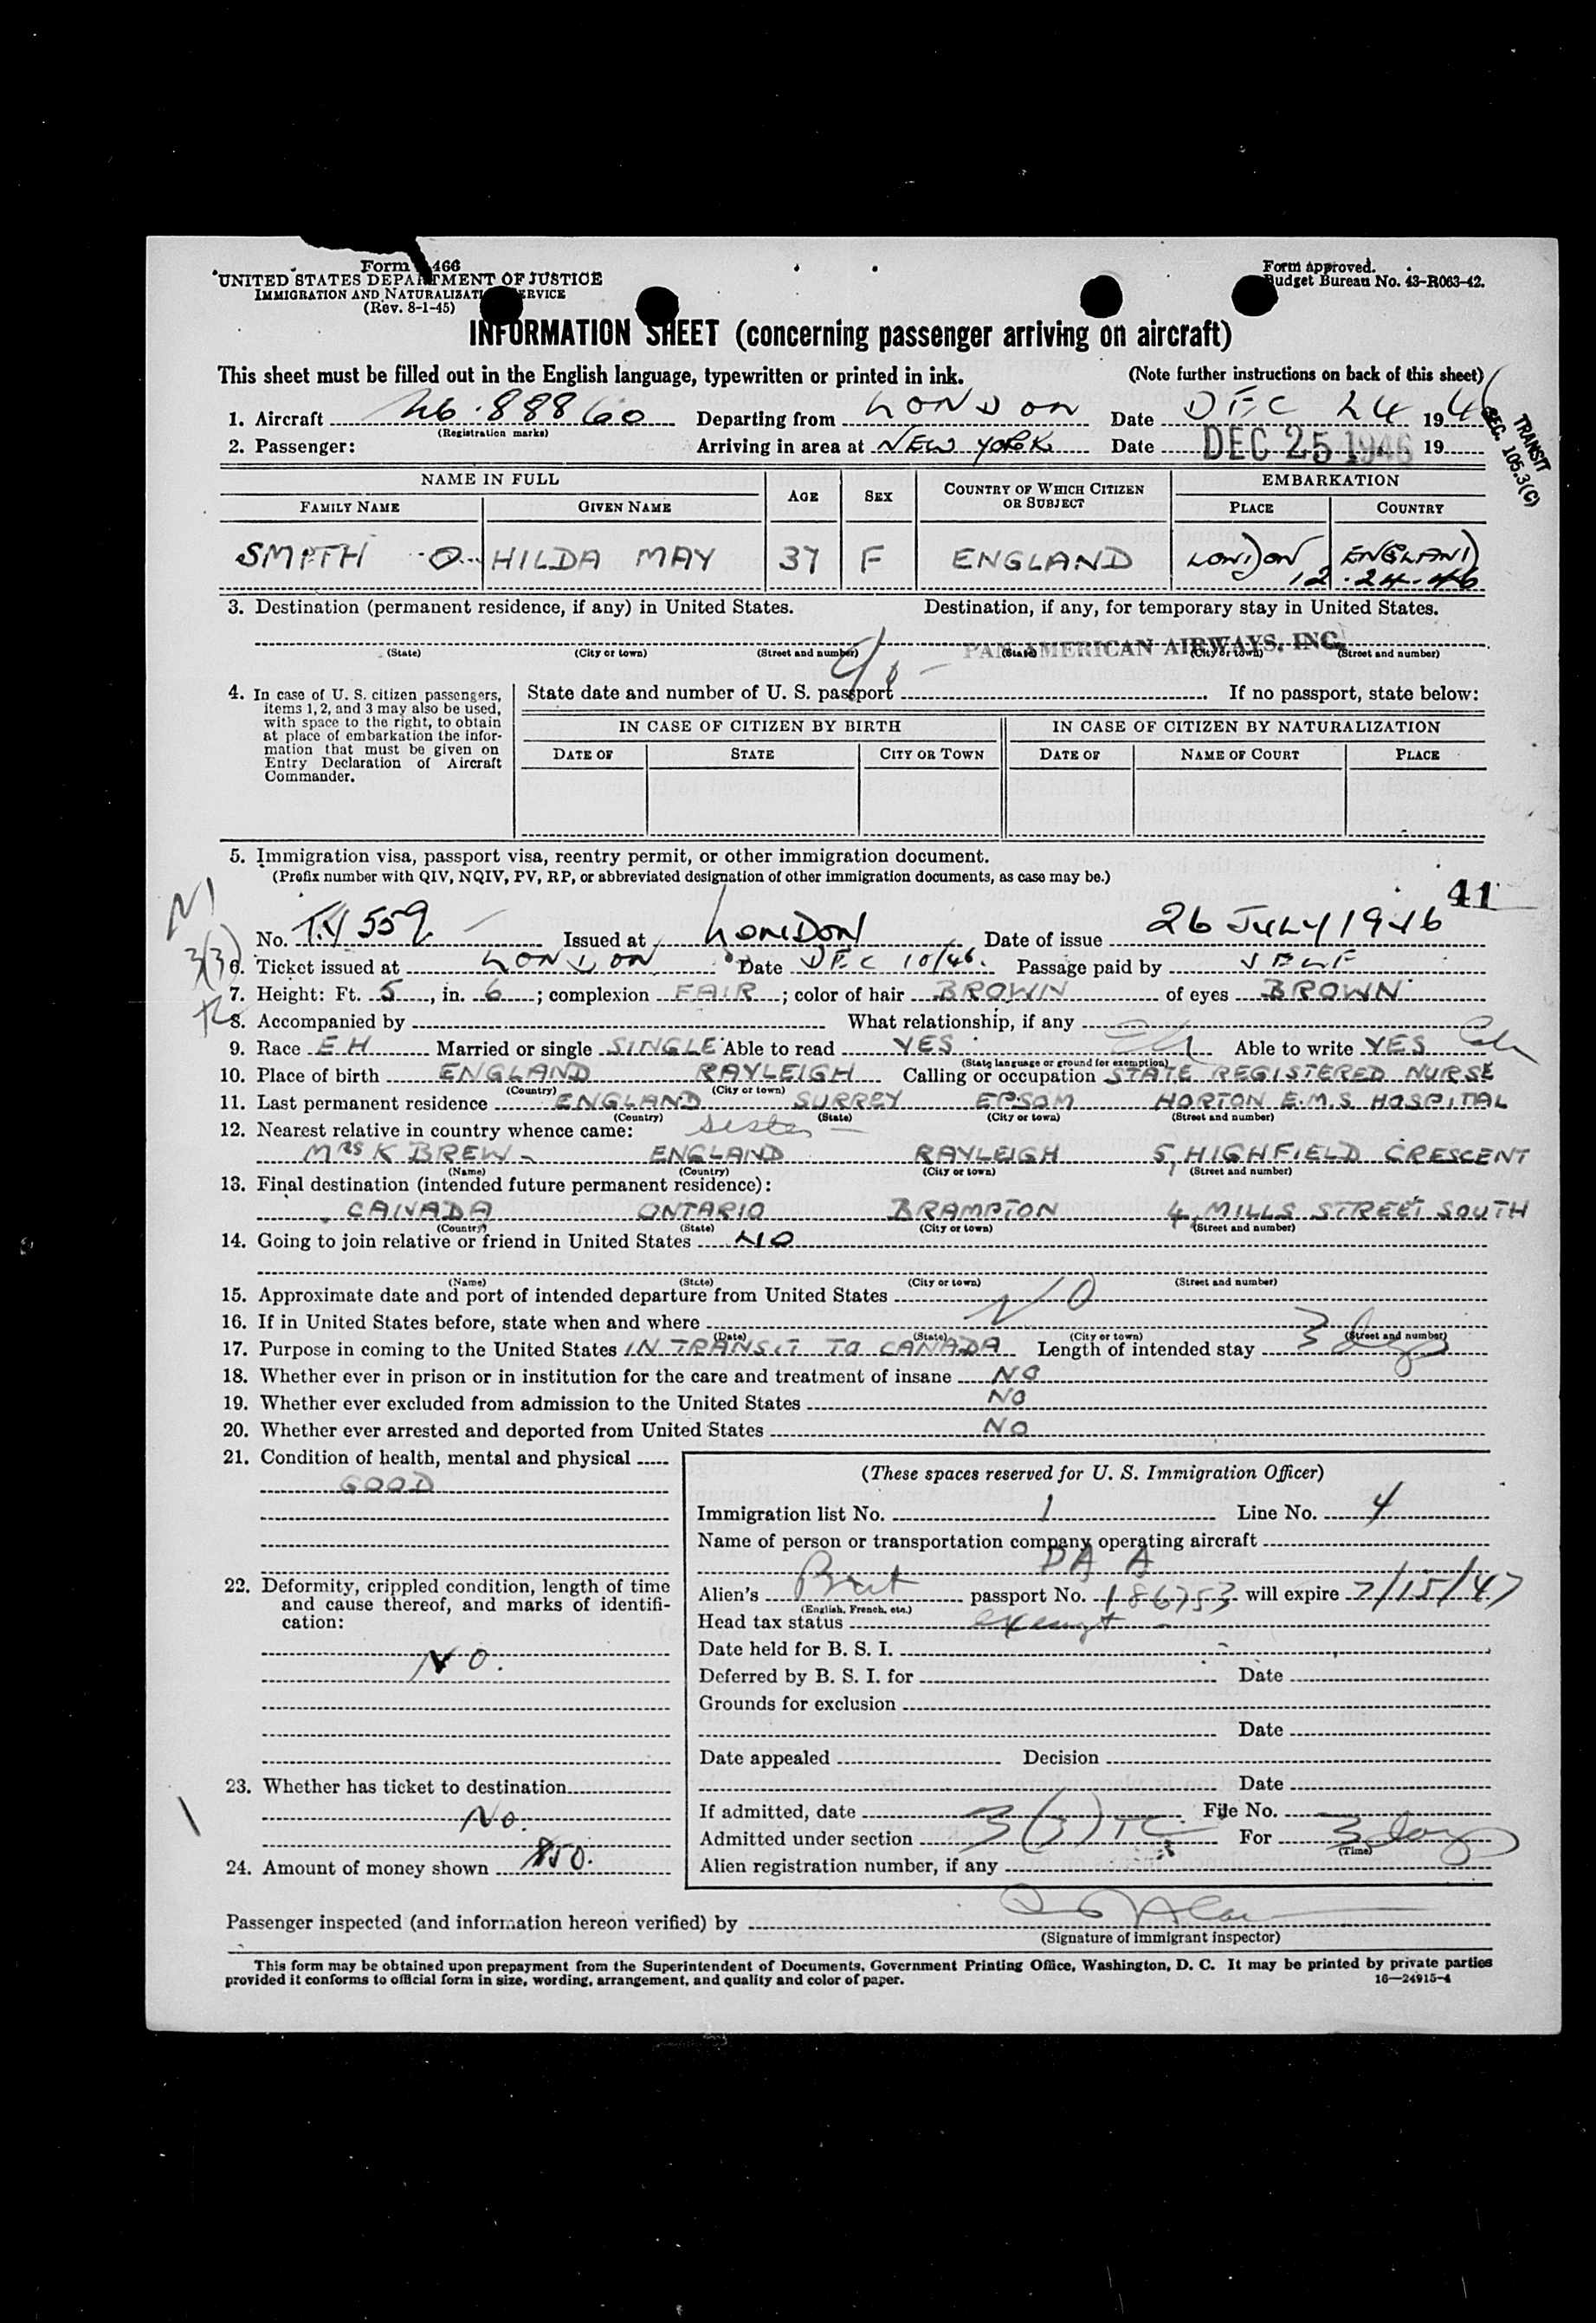 Form 466
UNITED STATES DEPARTMENT OF JUSTICE
IMMIGRATION AND NATURALIZATION SERVICE
(Rev. 8-1-45)
Form approved.
Budget Bureau No. 43-R063-42.
INFORMATION SHEET (concerning passenger arriving on aircraft)
This sheet must be filled out in the English language, typewritten or printed in ink. (Note further instructions on back of this sheet)
TRANSIT
SEC. 105.3(C)
1. Aircraft 88860 Departing from LONDON Date DEC 24 1946
(Registration marks)
2. Passenger: Arriving in area at NEW YORK Date DEC 25 1946 19
NAME IN FULL AGE SEX COUNTRY OF WHICH CITIZEN OR SUBJECT EMBARKATION
FAMILY NAME GIVEN NAME PLACE COUNTRY
SMITH HILDA MAY 37 F ENGLAND LONDON ENGLAND
12.24.46
3. Destination (permanent residence, if any) in United States. Destination, if any, for temporary stay in United States.
PAN AMERICAN AIRWAYS, INC.
(State) (City or town) (Street and number) (State) (City or town) (Street and number)
4. In case of U. S. citizen passengers, items 1, 2, and 3 may also be used, with space to the right, to obtain at place of embarkation the information that must be given on Entry Declaration of Aircraft Commander.
State date and number of U. S. passport If no passport, state below:
IN CASE OF CITIZEN BY BIRTH IN CASE OF CITIZEN BY NATURALIZATION
DATE OF STATE CITY OR TOWN DATE OF NAME OF COURT PLACE
5. Immigration visa, passport visa, reentry permit, or other immigration document.
(Prefix number with QIV, NQIV, PV, RP, or abbreviated designation of other immigration documents, as case may be.)
41
No. T.V 559 Issued at LONDON Date of issue 26 JULY 1946
3(3)
6. Ticket issued at LONDON Date DEC 10/46. Passage paid by SELF
7. Height: Ft. 5, in. 6; complexion FAIR; color of hair BROWN of eyes BROWN
8. Accompanied by What relationship, if any
9. Race EH Married or single SINGLE Able to read YES Able to write YES
(State language or ground for exemption)
10. Place of birth ENGLAND RAYLEIGH Calling or occupation STATE REGISTERED NURSE
(Country) (City or town)
11. Last permanent residence ENGLAND SURREY EPSOM HORTON E.M.S. HOSPITAL
(Country) (State) (City or town) (Street and number)
12. Nearest relative in country whence came: sister
MRS K BREW ENGLAND RAYLEIGH 5, HIGHFIELD CRESCENT
(Name) (Country) (City or town) (Street and number)
13. Final destination (intended future permanent residence):
CANADA ONTARIO BRAMPTON 4, MILLS STREET SOUTH
(Country) (State) (City or town) (Street and number)
14. Going to join relative or friend in United States NO
(Name) (State) (City or town) (Street and number)
15. Approximate date and port of intended departure from United States
16. If in United States before, state when and where NO
(Date) (State) (City or town) (Street and number)
17. Purpose in coming to the United States IN TRANSIT TO CANADA Length of intended stay 3 days
18. Whether ever in prison or in institution for the care and treatment of insane NO
19. Whether ever excluded from admission to the United States NO
20. Whether ever arrested and deported from United States NO
21. Condition of health, mental and physical
GOOD
22. Deformity, crippled condition, length of time and cause thereof, and marks of identification:
NO.
23. Whether has ticket to destination
No.
24. Amount of money shown
(These spaces reserved for U. S. Immigration Officer)
Immigration list No. 1 Line No. 4
Name of person or transportation company operating aircraft
PAA
Alien's Brit passport No. 186753 will expire 7/15/47
(English, French, etc.)
Head tax status exempt
Date held for B. S. I.
Deferred by B. S. I. for Date
Grounds for exclusion
Date
Date appealed Decision
Date
If admitted, date File No.
Admitted under section 3(3) TC For 3 days
(Time)
Alien registration number, if any
Passenger inspected (and information hereon verified) by
(Signature of immigrant inspector)
This form may be obtained upon prepayment from the Superintendent of Documents, Government Printing Office, Washington, D. C. It may be printed by private parties
provided it conforms to official form in size, wording, arrangement, and quality and color of paper. 16—24915-4